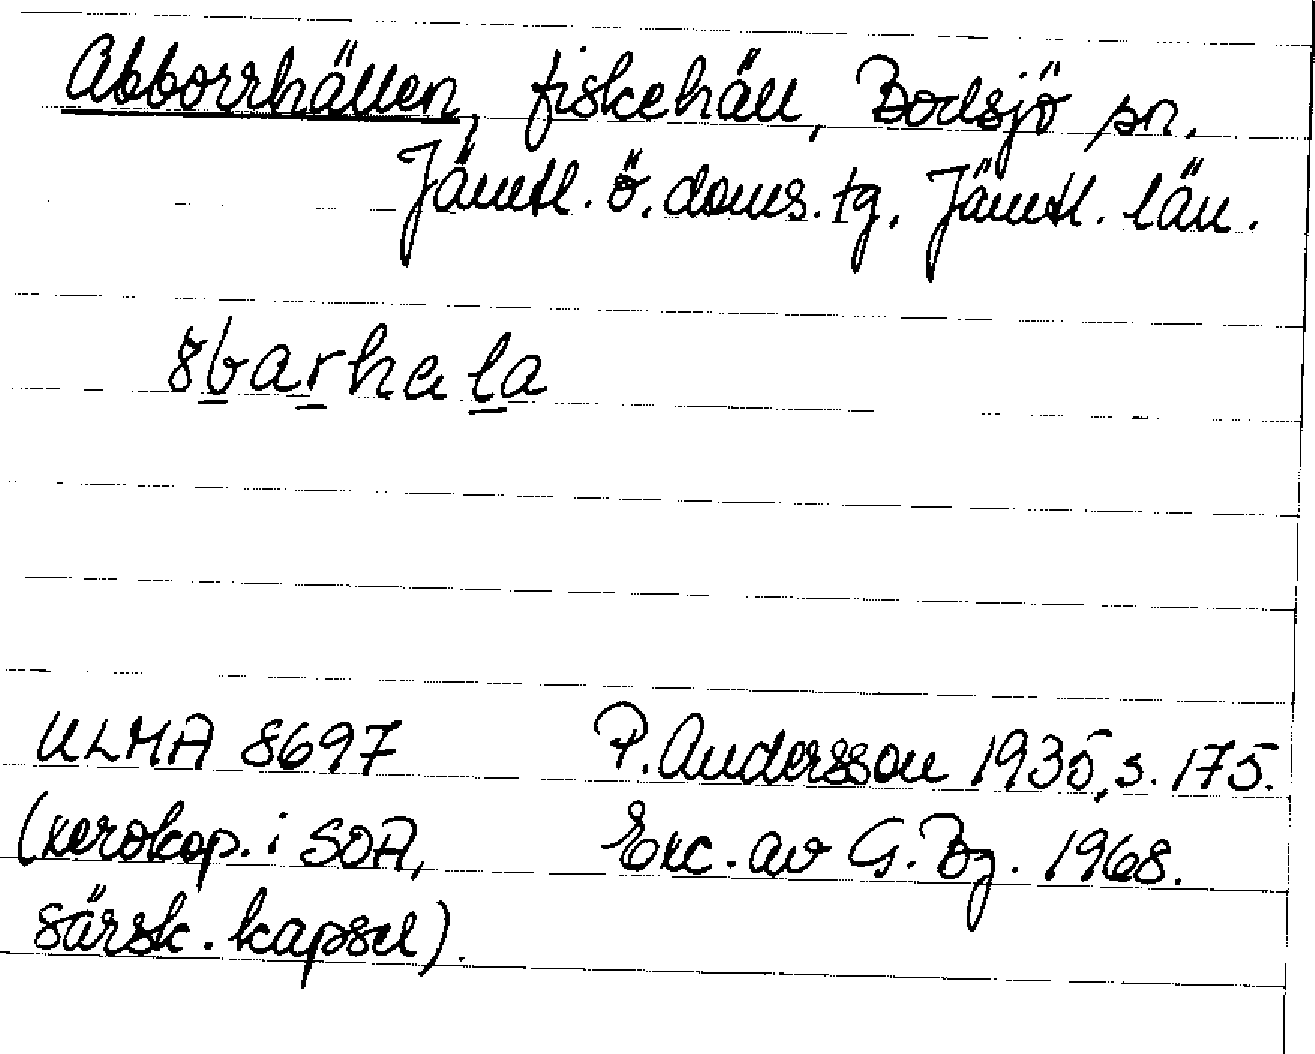 Abborrhällen, fiskehäll, Bodsjö sn.
Jämtl. ö. doms. tg. Jämtl. län.
ULMA 8697
P. Andersson 1935, s. 175.
(xerokop. i SOA,
Exc. av G. Bg. 1968.
särsk. kapsel).